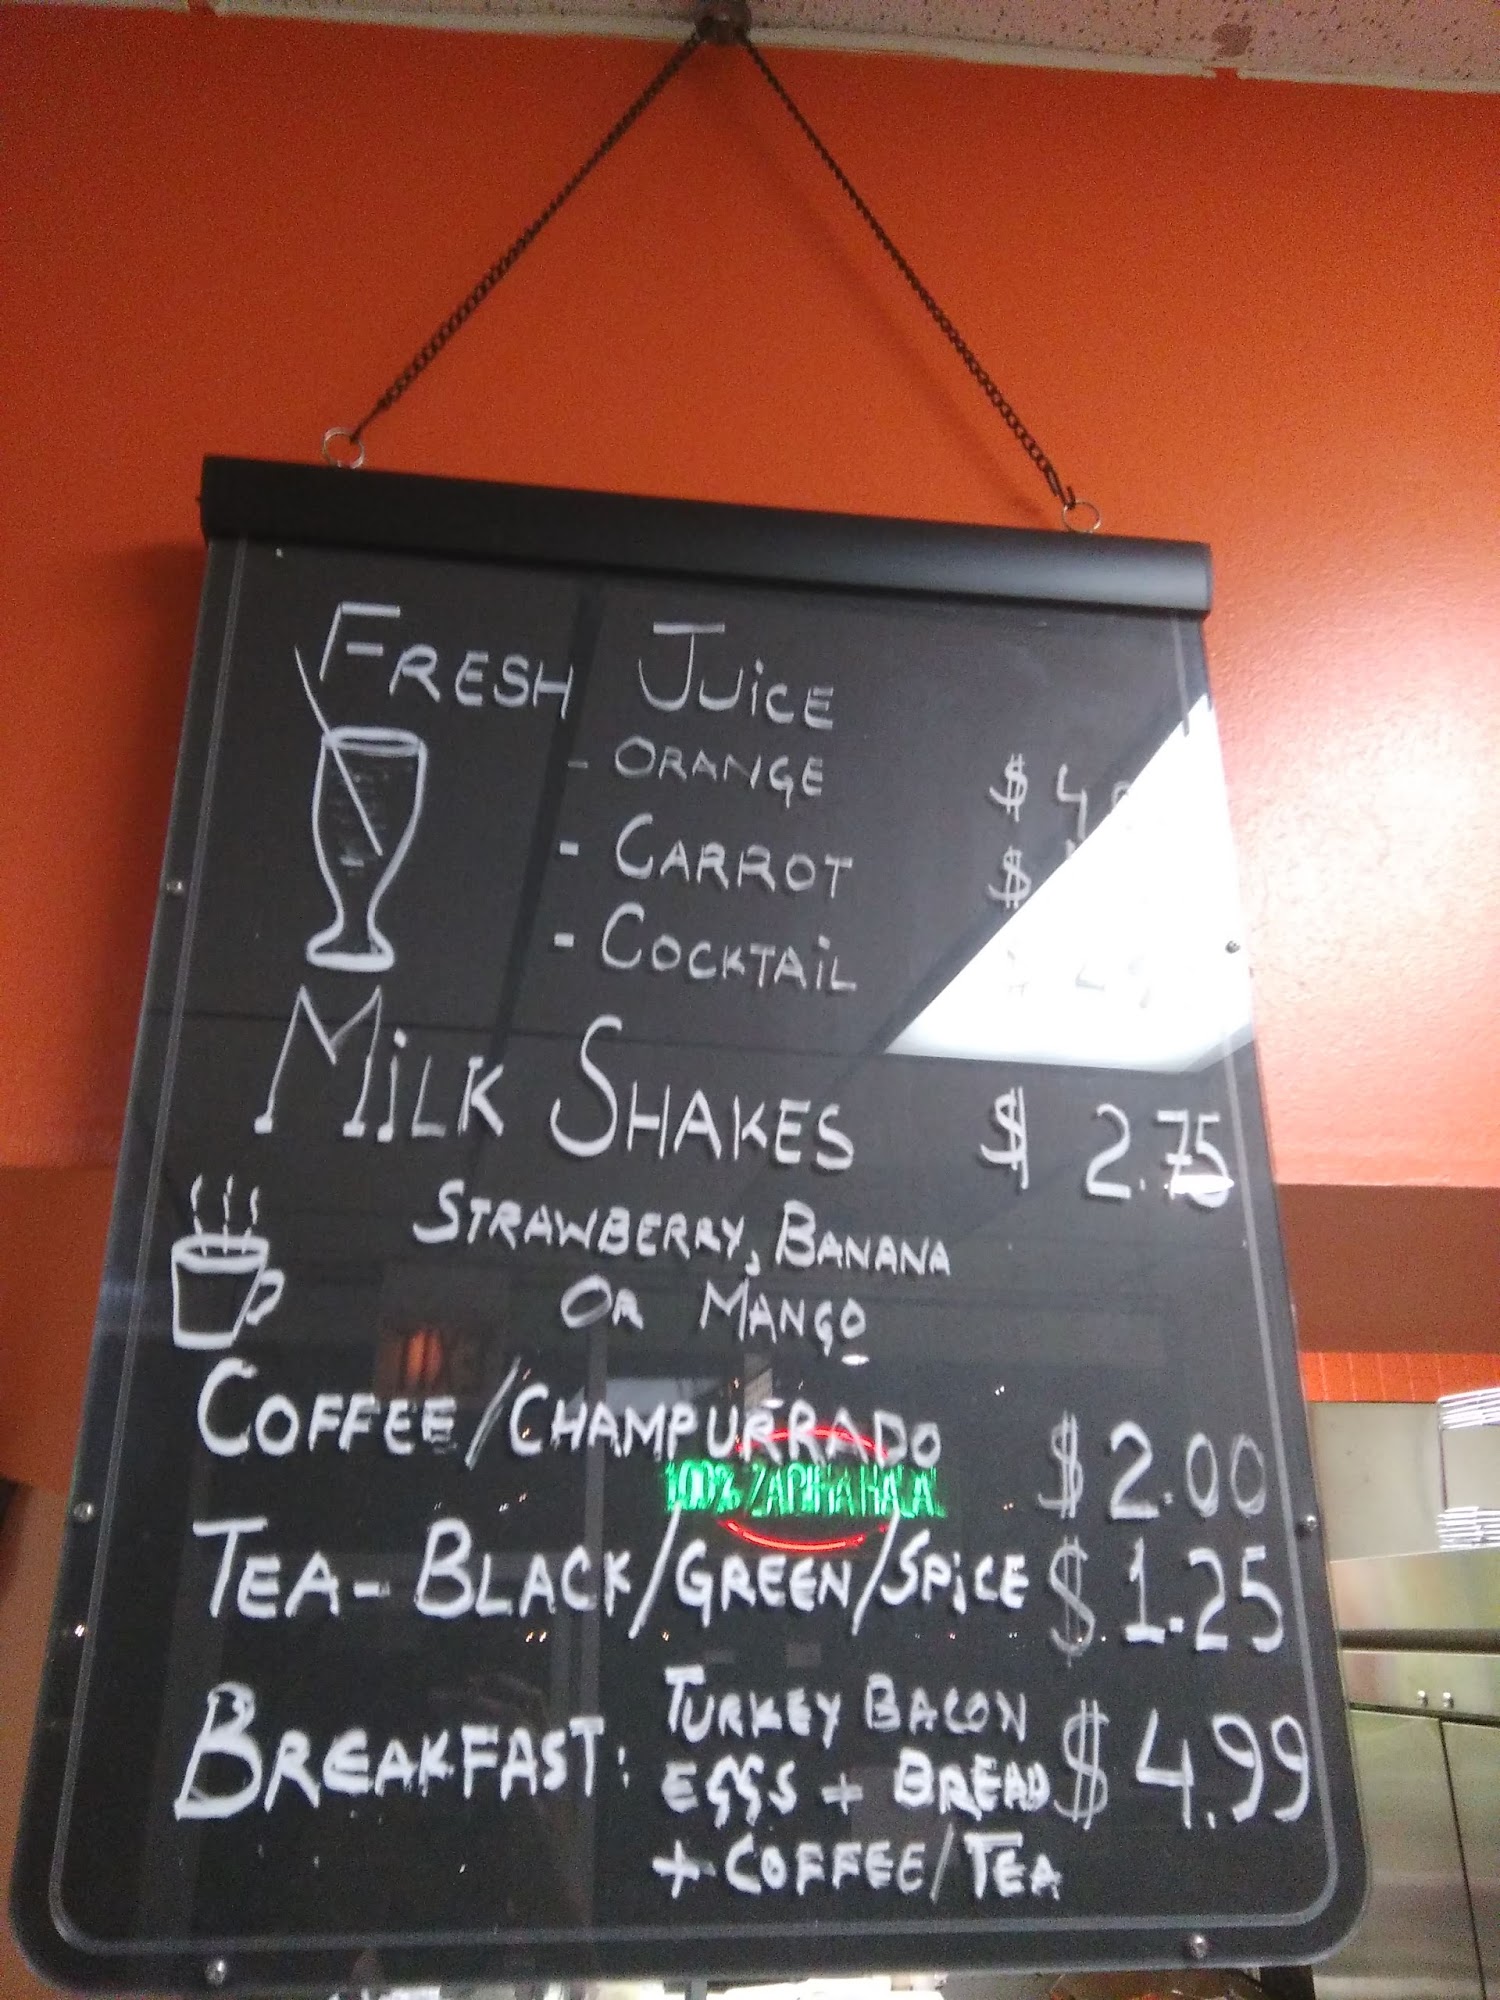 FRESH JUICE
- ORANGE $ 4
- CARROT $
- COCKTAIL
MILK SHAKES $ 2.75
STRAWBERRY, BANANA
OR MANGO
COFFEE/CHAMPURRADO $ 2.00
100% ZABIHA HALAL
TEA- BLACK/GREEN/SPICE $ 1.25
BREAKFAST: TURKEY BACON
EGGS + BREAD $ 4.99
+ COFFEE/TEA